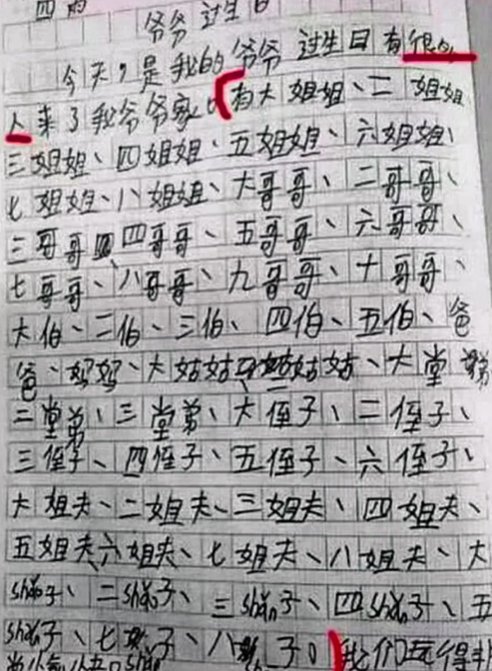 爷爷过生日
今天,是我的爷爷过生日有很多
人来了我爷爷家。有大姐姐、二姐姐
三姐姐、四姐姐、五姐姐、六姐姐、
七姐姐、八姐姐、大哥哥、二哥哥、
三哥哥、四哥哥、五哥哥、六哥哥、
七哥哥、八哥哥、九哥哥、十哥哥、
大伯、二伯、三伯、四伯、五伯、爸
爸、妈妈、大姑姑、姑姑、大堂弟
二堂弟、三堂弟、大侄子、二侄子、
三侄子、四侄子、五侄子、六侄子、
大姐夫、二姐夫、三姐夫、四姐夫、
五姐夫、六姐夫、七姐夫、八姐夫、大
shǎo子、二shǎo子、三shǎo子、四shǎo子、五
shǎo子、七子、八子。我们玩得非